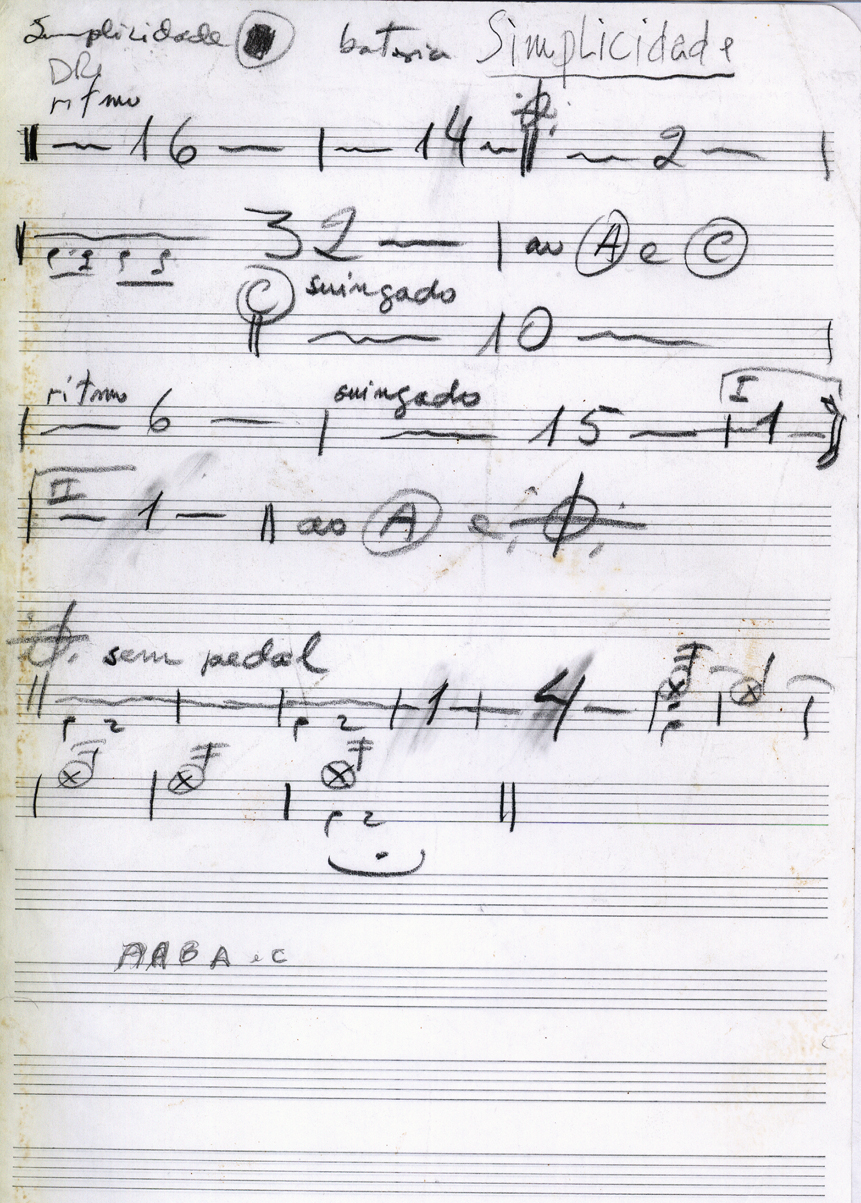 Simplicidade bateria Simplicidade
DR.
ritmo
16 14 2
32 ao A e C
C suingado
10
ritmo 6 suingado 15 I 1
II 1 ao A e
sem pedal
1 4
A A B A e C